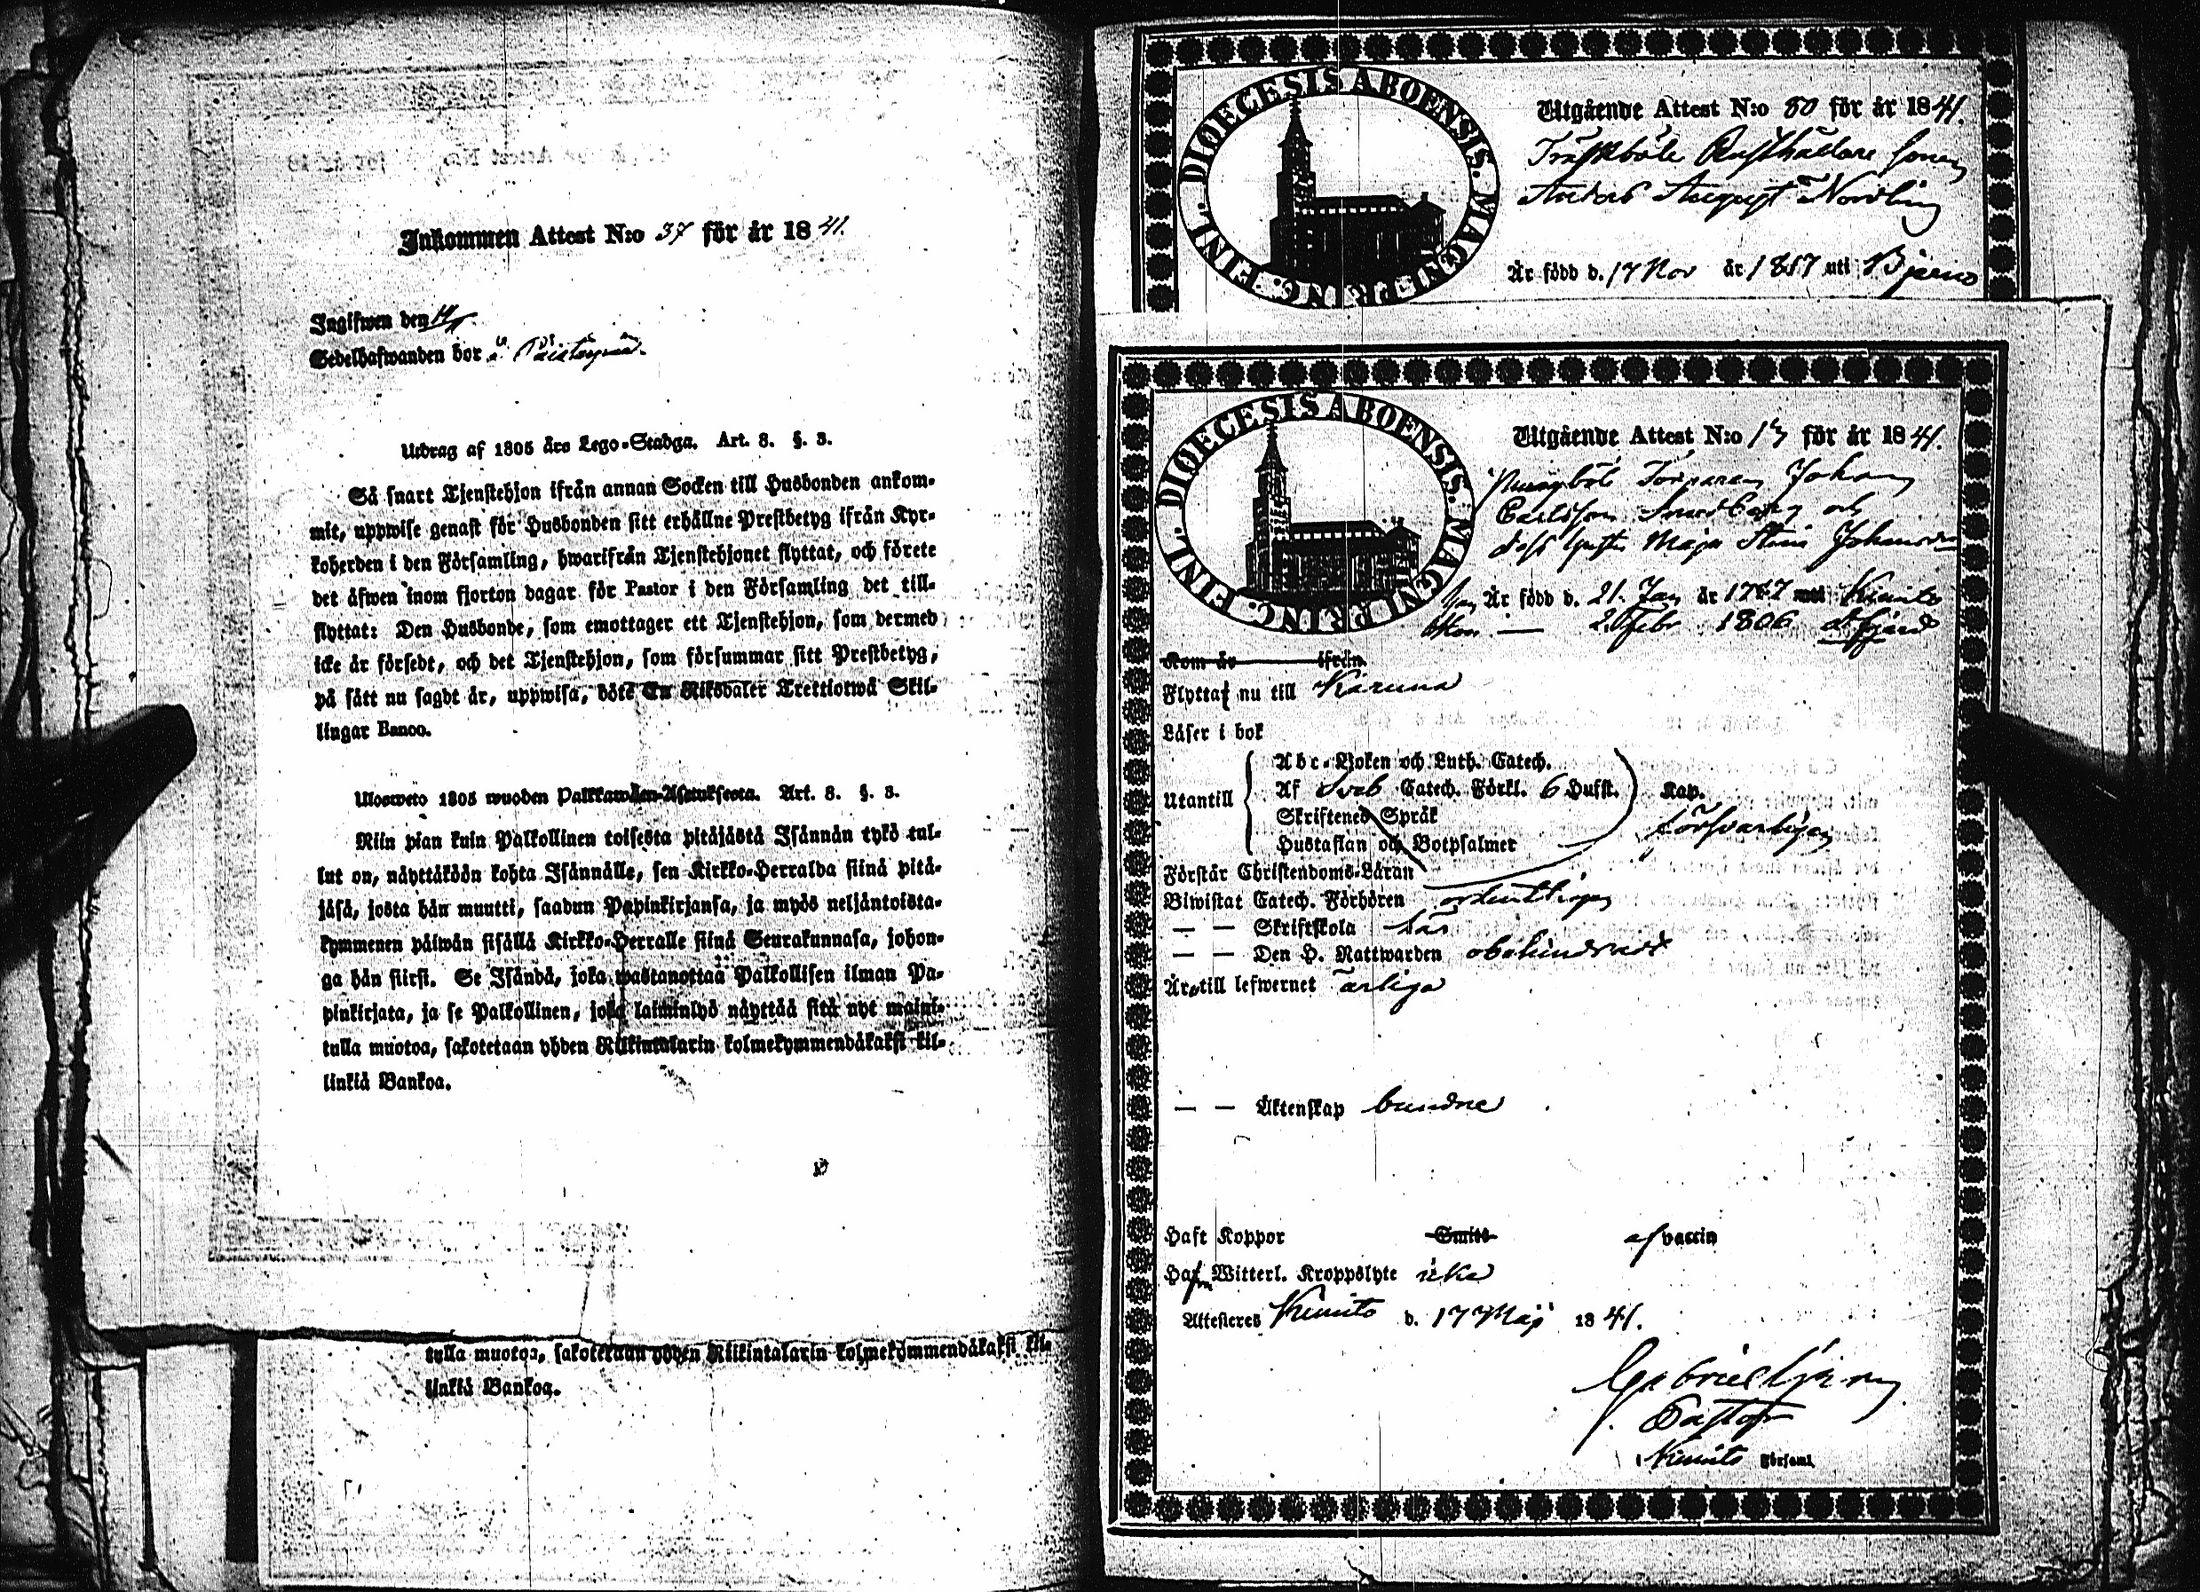 Inkommen Attest N:o 37 för år 1841.
Ingifwen den
Sedelhafwanden bor
Utdrag af 1805 års Lego-Stadga. Art. 8. §. 3.
Så snart Tjenstehjon ifrån annan Socken till Husbonden ankom-
mit, uppwise genast för Husbonden sitt erhållne Prestbetyg ifrån Kyr-
koherden i den Församling, hwarifrån Tjenstehjonet flyttat, och förete
det äfwen inom fjorton dagar för Pastor i den Församling det till-
flyttat: Den Husbonde, som emottager ett Tjenstehjon, som dermed
icke är försedt, och det Tjenstehjon, som försummar sitt Prestbetyg,
på sätt nu sagdt är, uppwisa, böte En Riksdaler Trettiotwå Skil-
lingar Banco.
Ulosweto 1805 wuoden Palkkawäen-Asetuksesta. Art. 8. §. 3.
Niin pian kuin Palkollinen toisesta pitäjästä Isännän tykö tul-
lut on, näyttäköön kohta Isännälle, sen Kirkko-Herralda siinä pitä-
jäsä, josta hän muutti, saadun Papinkirjansa, ja myös neljäntoista-
kymmenen päiwän sisällä Kirkko-Herralle siinä Seurakunnasa, johon-
ga hän siirsi. Se Isändä, joka wastanottaa Palkollisen ilman Pa-
pinkirjata, ja se Palkollinen, joka laiminlyö näyttää sitä nyt maini-
tulla muotoa, sakotetaan yhden Riikintalarin kolmekymmendäkaksi kil-
linkiä Bankoa.
tulla muotoa, sakotetaan yhden Riikintalarin kolmekymmendäkaksi kil-
linkiä Bankoa.
DIOECESIS ABOENSIS. MAGNI PRINC. FINL.
Utgående Attest N:o 80 för år 1841.
Träskböle Rusthållare sonen
Anders August Nordling
Är född d. 17 Nov år 1817 uti Bjerno
DIOECESIS ABOENSIS. MAGNI PRINC. FINL.
Utgående Attest N:o 13 för år 1841.
Torparen Johan
Carlsson Sundberg och
dess hustru Maja Stina
Är född d. 21. Jan år 1787 uti Kimito
Hon — 2 Febr 1806
Kom år ifrån
Flyttat nu till Karuna
Läser i bok
Utantill
Abc-Boken och Luth. Catech.
Af Sveb Catech. Förkl. 6 Hufst. Kap.
Skriftenes Språk försvarligen
Hustaflan och Botpsalmer
Förstår Christendoms-Läran
Biwistat Catech. Förhören ordentligen
— — Skriftskola
— — Den H. Nattwarden obehindrade
Är till lefwernet ärliga
— — Äktenskap bundne
Haft Koppor Smitt af vaccin
Haf Witterl. Kroppslyte icke
Attesteres Kimito d. 17 Maj 1841.
Pastor
i Kimito Församl.